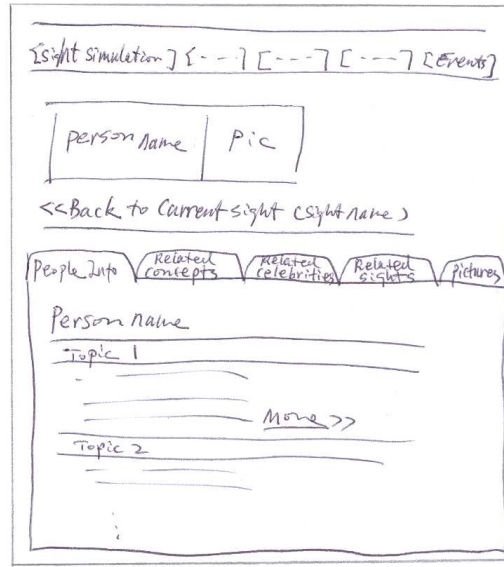 [sight simulation] [---] [---] [---] [Events]
person name pic
<<Back to Current sight (sight name)
People Info Related concepts Related celebrities Related sights pictures
Person name
Topic 1
More >>
Topic 2